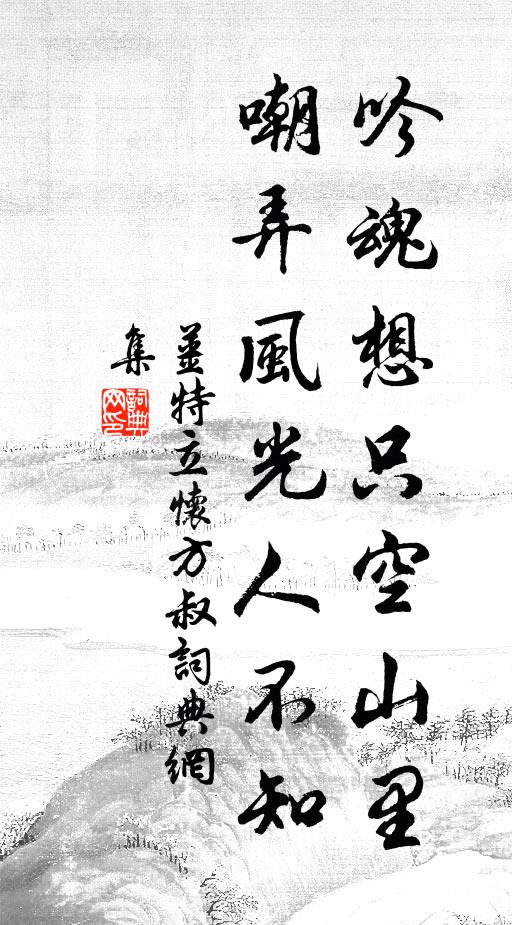 吟魂想只空山里
嘲弄風光人不知
姜特立懷方叔詞典網
集
詞典網印